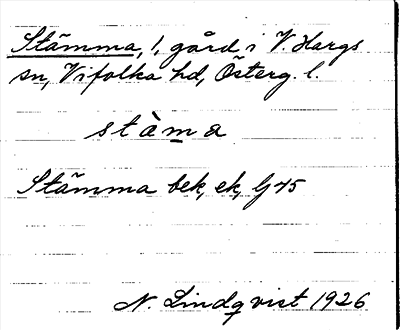 Stämma, 1, gård i V. Hargs
sn, Vifolka hd, Österg. l.
stàma
Stämma bek, ek, G 45
N. Lindqvist 1926